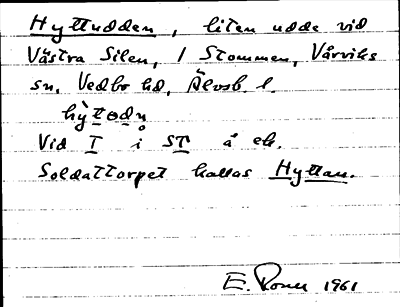 Hyttudden, liten udde vid
Västra Silen, 1 Stommen, Vårviks
sn, Vedbo hd, Älvsb. l.
hỳtɵdn
Vid I i ST å ek.
Soldattorpet kallas Hyttan.
E. 1961